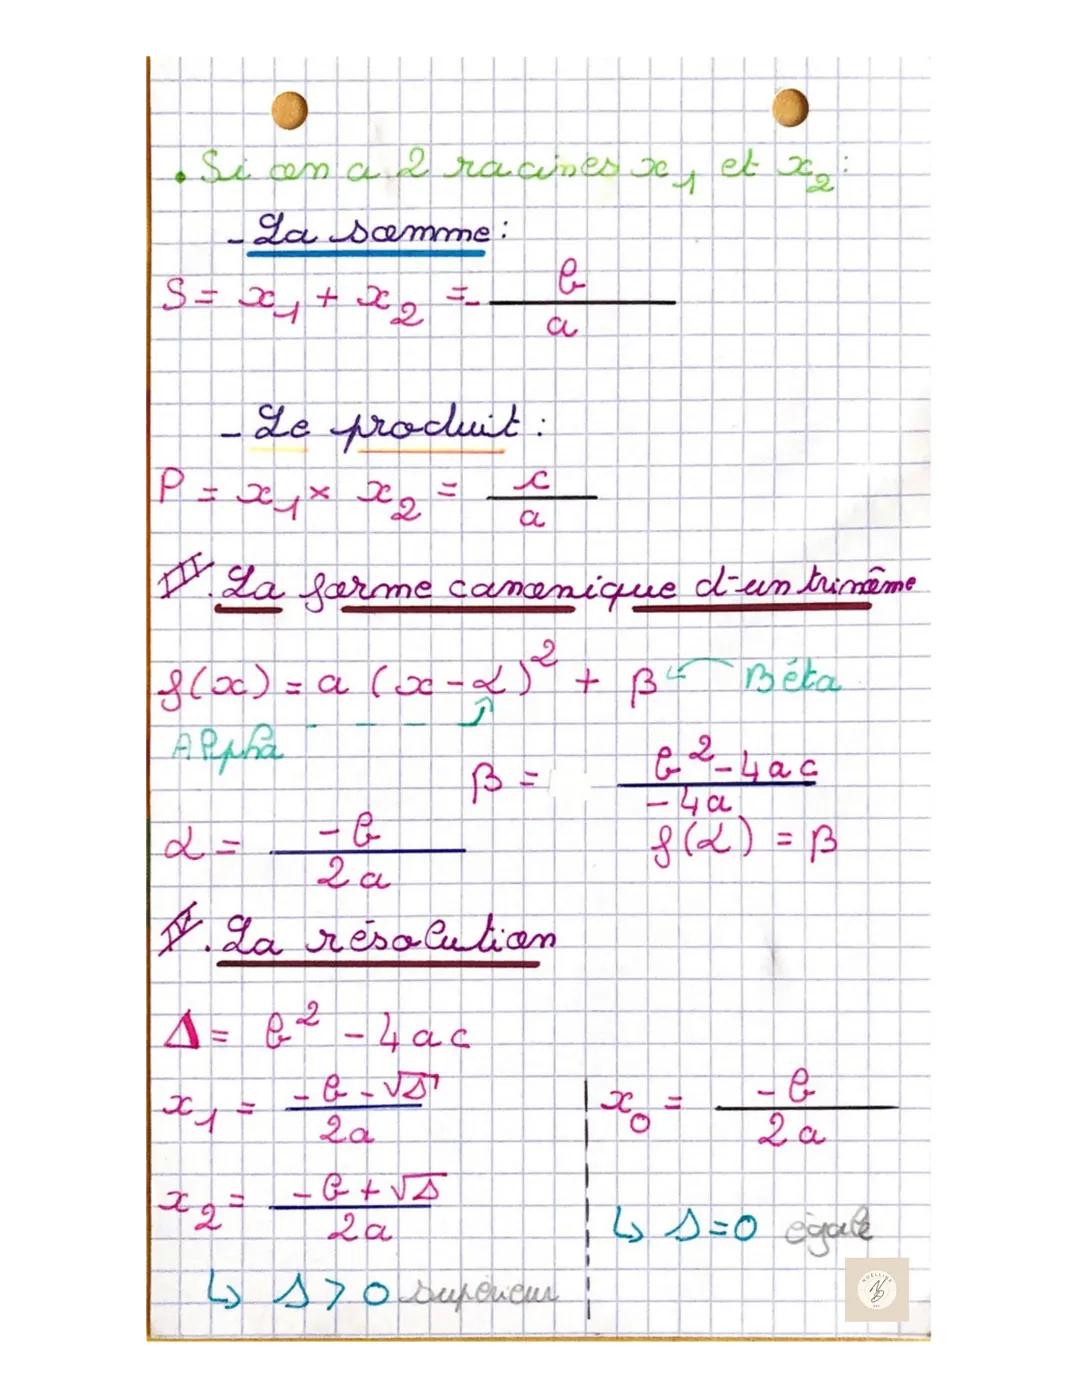 • Si on a 2 racines x₁ et x₂ :
- La somme :
S = x₁ + x₂ = - b/a
- Le produit :
P = x₁ × x₂ = c/a
III. La forme canonique d'un trinôme
f(x) = a (x - α)² + β ← Béta
Alpha
β = (b² - 4ac)/(-4a)
α = -b/2a
f(α) = β
La résolution
Δ = b² - 4ac
x₁ = (-b - √Δ)/2a
x₀ = -b/2a
x₂ = (-b + √Δ)/2a
↳ Δ = 0 égale
↳ Δ > 0 supérieur